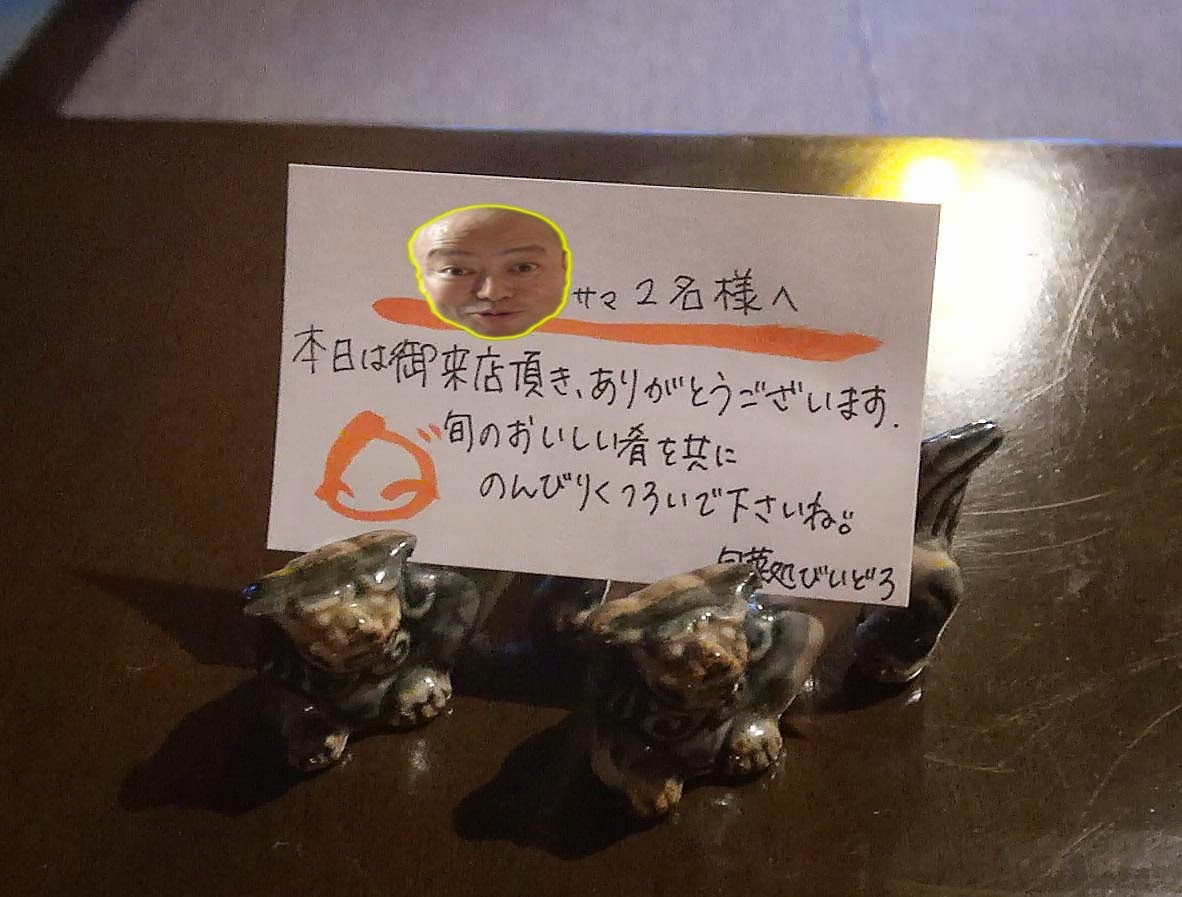 サマ 2名様へ
本日は御来店頂き、ありがとうございます.
旬のおいしい肴を共に
のんびりくつろいで下さいね。
旬菜処びいどろ